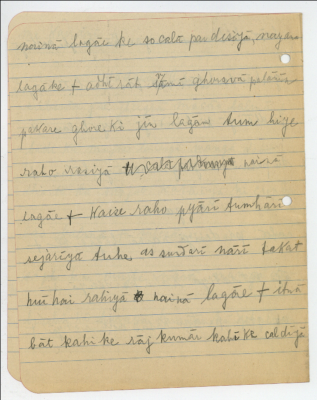 nainā lagāe ke so calā pardesiyā, nayan
lagāke + ādhī rāt ghoravā
pakare ghore ki jīn lagām tum kige
raho rasiyā nainā
lagāe + kaise raho pyārī tumhārī
sejariyā tuhe as sundarī nārī takat
huī hai rahiyā nainā lagāe + itnā
bāt kahi ke rāj kumār kahī ke cal diyā